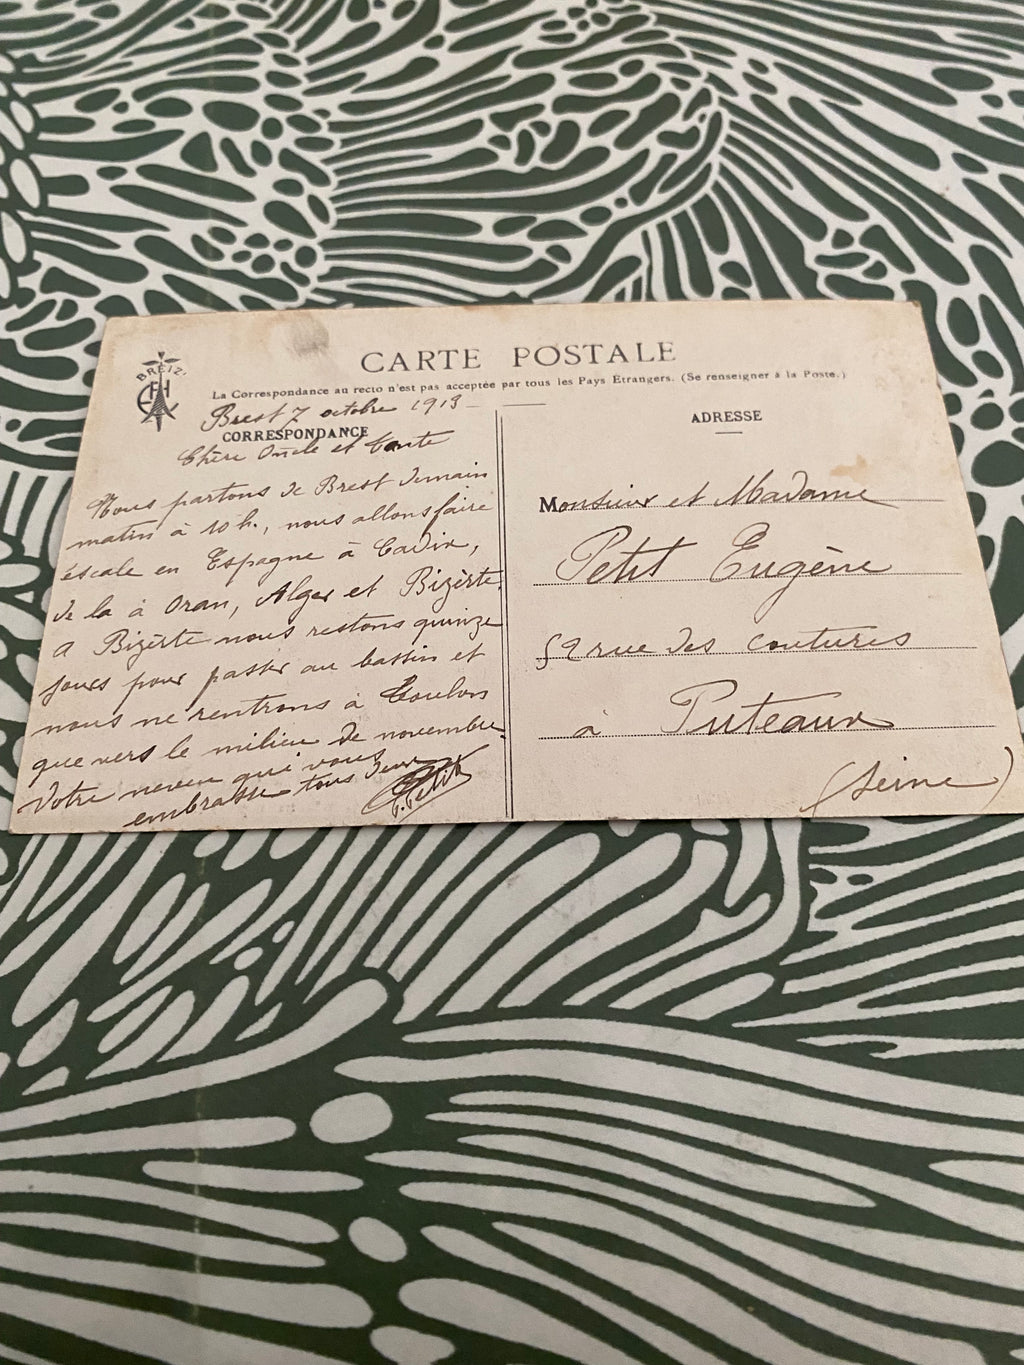 BREIZ'
CARTE POSTALE
La Correspondance au recto n'est pas acceptée par tous les Pays Étrangers. (Se renseigner à la Poste.)
Brest 7 octobre 1913
CORRESPONDANCE
Chère Oncle et Tante
Nous partons de Brest demain
matin à 10 h., nous allons faire
éscale en Espagne à Cadix,
de la à Oran, Alger et Bizèrte.
A Bizèrte nous restons quinze
jours pour passer au bassin et
nous ne rentrons à Toulon
que vers le milieu de novembre.
Votre neveu qui vous
embrasse tous deux
E. Petit
ADRESSE
Monsieur et Madame
Petit Eugène
52 rue des coutures
à Puteaux
(Seine)